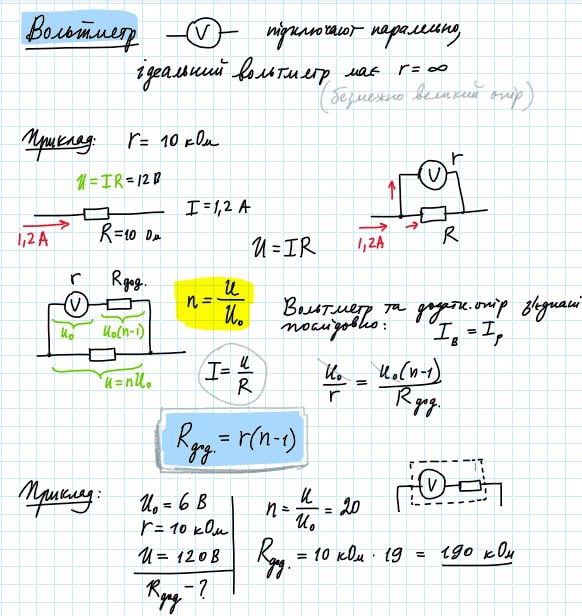 Вольтметр V підключают паралельно,
ідеальний вольтметр має r = ∞
(безмежно великий опір)
Приклад: r = 10 кОм
U = IR = 12 В
I = 1,2 А
1,2 А R = 10 Ом
U = IR
r
V
1,2А R
r Rдод.
V
U₀ U₀(n-1)
U = nU₀
n = U/U₀
Вольтметр та додатк. опір з'єднані
послідовно: Iв = Iр
I = U/R
U₀/r = U₀(n-1)/Rдод.
Rдод. = r(n-1)
Приклад:
U₀ = 6 В
r = 10 кОм
U = 120 В
Rдод - ?
n = U/U₀ = 20
Rдод. = 10 кОм · 19 = 190 кОм
V